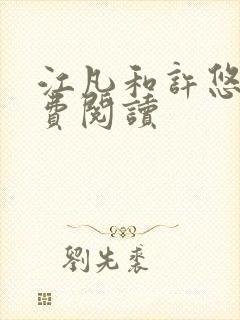 江凡和許悠
費閱讀
劉先裘